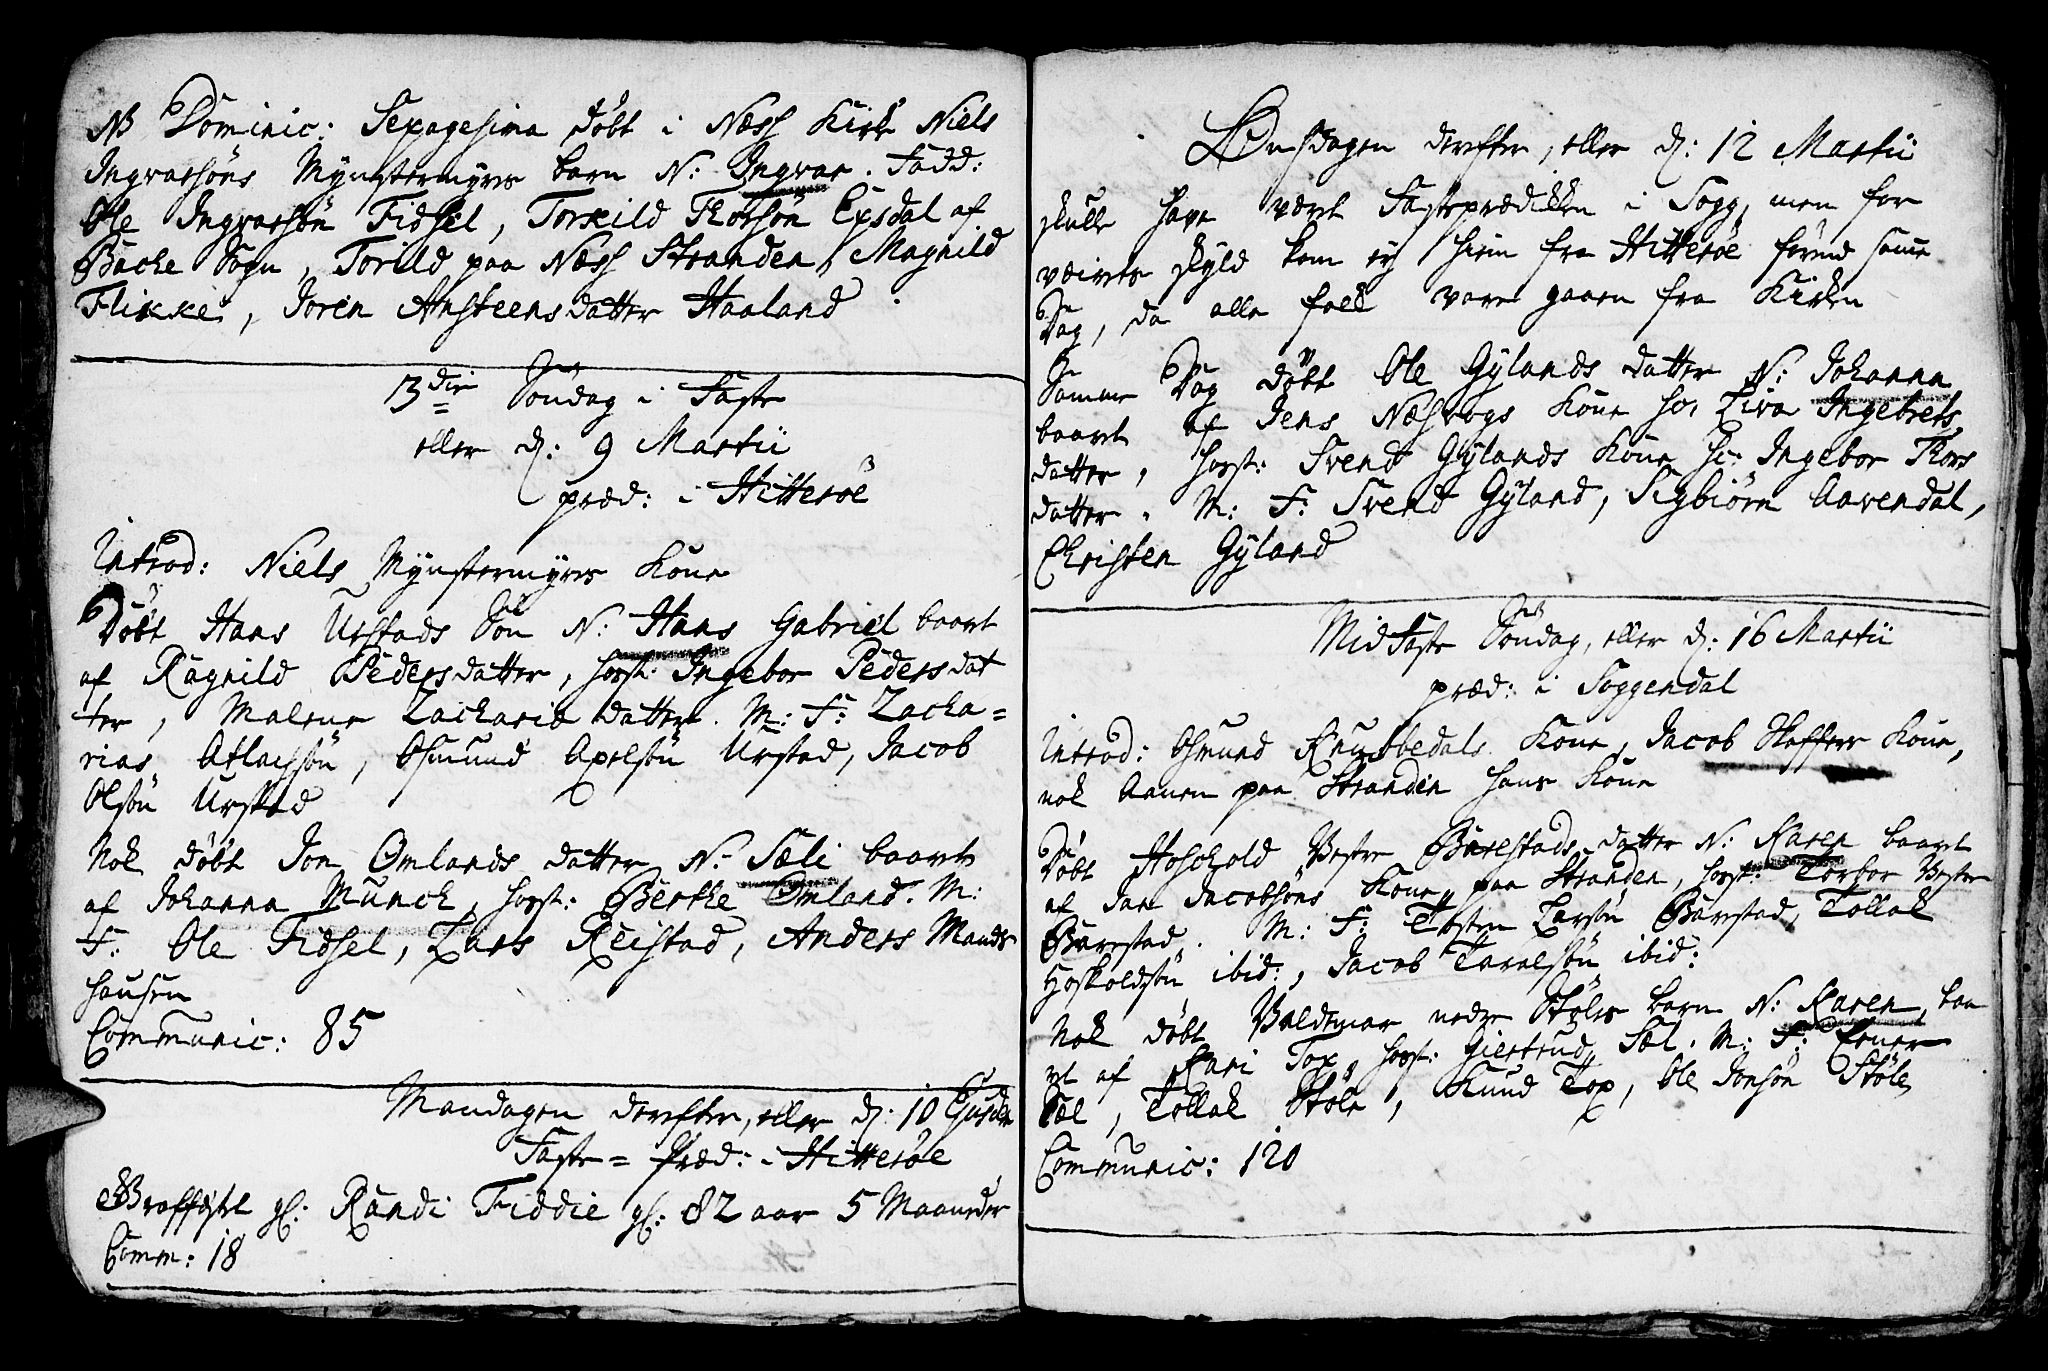 NB Dominic: Sexagesima døbt i Næss Kirke Niels
Ingvarsöns Mÿnstermÿrs barn N: Ingvar. Fadd:
Ole Ingvarsön Fidsel, Torkild Thorsön Epsdal af
Bache Sogn, Torild paa Næss Stranden, Magnild
Flikke, Joren Ansteensdatter Haaland
3die Söndag i Faste
eller d: 9 Martii
præd: i Hitterøe
Introd: Niels Mÿnstermÿrs Kone
Døbt Hans Urstads Sön N: Hans Gabriel baaret
af Ragnild Pedersdatter, host: Ingebor Pedersdat
ter, Malene Zachariædatter. M: F: Zacha=
rias Atlachsön, Osmund Axelsön Urstad, Jacob
Olsön Urstad
Nok døbt Jon Omlands datter N: Sæli baaret
af Johanna Munch, host: Berthe Omland. M:
F: Ole Fidsel, Lars Reistad, Anders Mands
hausen
Communic: 85
Mandagen derefter, eller d: 10 Ejusdem
Faste= Præd: i Hitterøe
Begraffvet gl: Randi Fiddie gl: 82 aar 5 Maaneder
Comm: 18
Onsdagen derefter, eller d: 12 Martii
skulle have været Fasteprædiken i Sogg, men for
veirets skyld kom ej hiem fra Hitterøe førend samme
Dag, da alle folk vare gaaen fra Kirken
Samme Dag døbt Ole Gÿlands datter N: Johanna
baaret af Jens Næsvogs Kone Sc. Siva Ingebrets
datter, host: Svend Gÿlands Kone Sc: Ingebor Thors
datter. M: F: Svend Gÿland, Sigbiörn Aavendal,
Christen Gÿland
Midfaste Söndag, eller d: 16 Martii
præd: i Soggendal
Introd: Osmund Knubbedals Kone, Jacob Skeffers Kone,
nok Aanen paa Stranden hans Kone
Døbt Hoskold Vestre Barestads datter N: Karen baaret
af Jan Jacobsöns Kone paa Stranden, host: Torbor Vestre
Barestad. M: F: Tosten Larsön Barestad, Tollak
Hoskoldsön ibid:, Jacob Taralsön ibid:
Nok døbt Valdemar nedre Støles barn N: Karen, baa
ret af Kari Top, host: Giertrud Sæl. M: F: Einer
Sæl, Tollak Støle, Knud Top, Ole Jonsön Støle,
Communic: 120